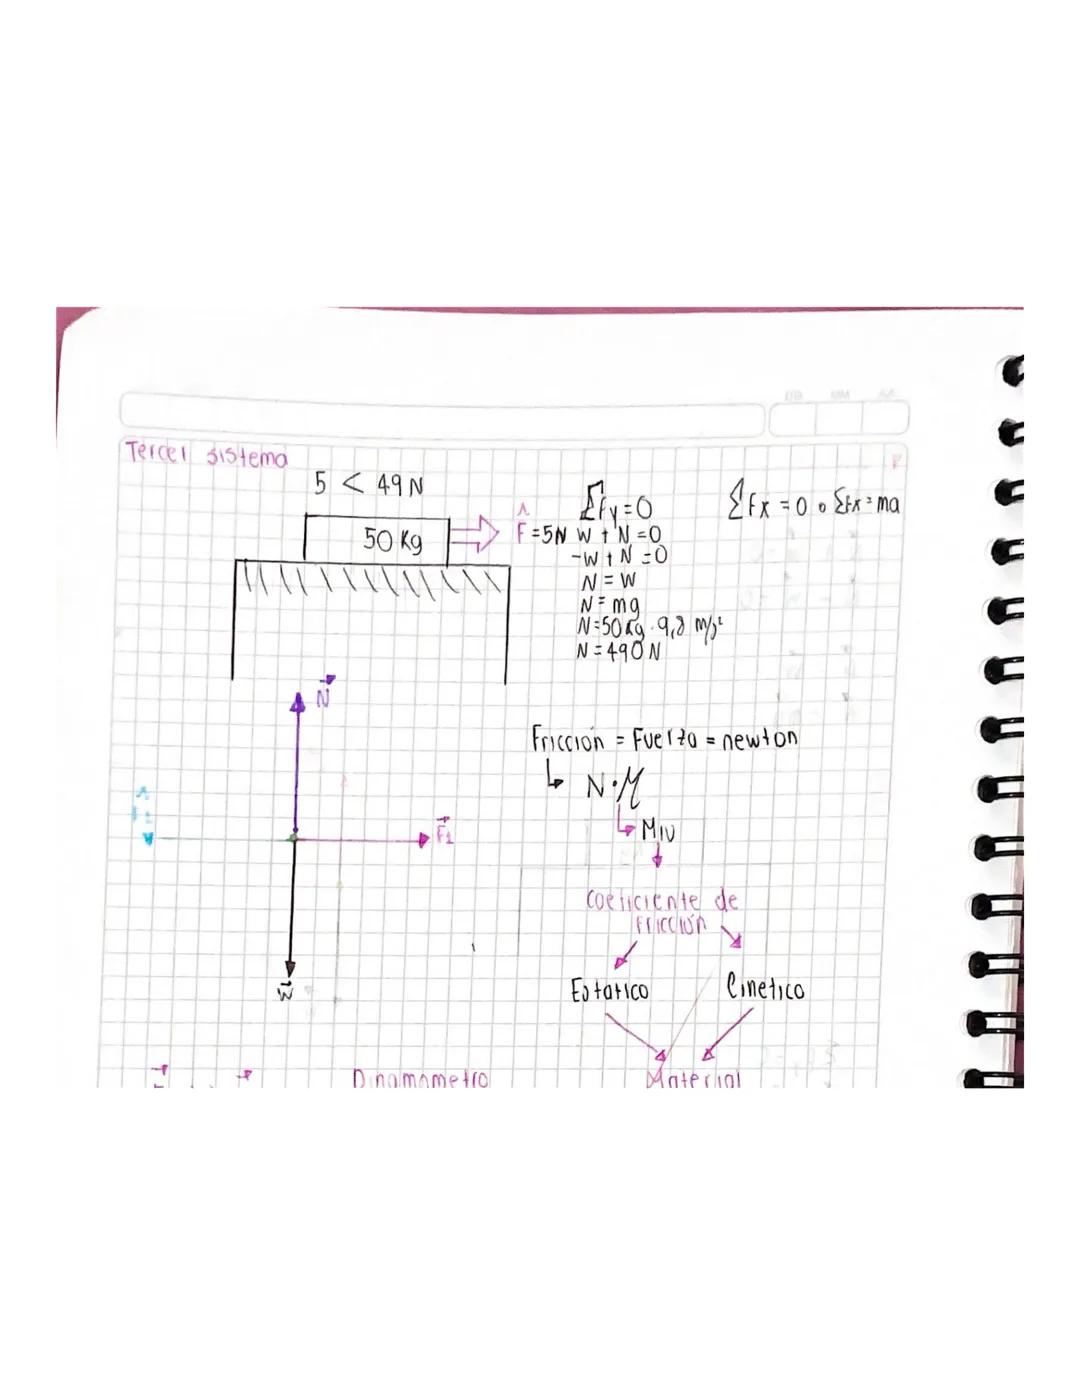 DD MM AA
Tercer sistema
5 < 49 N
50 Kg
F = 5N
ΣFy = 0
W + N = 0
-W + N = 0
N = W
N = mg
N = 50 Kg · 9,8 m/s²
N = 490 N
ΣFx = 0 o ΣFx = ma
N
F1
W
Friccion = Fuerza = newton
N·M
Miu
Coeficiente de
Fricción
Estatico
Cinetico
Dinamometro
Material